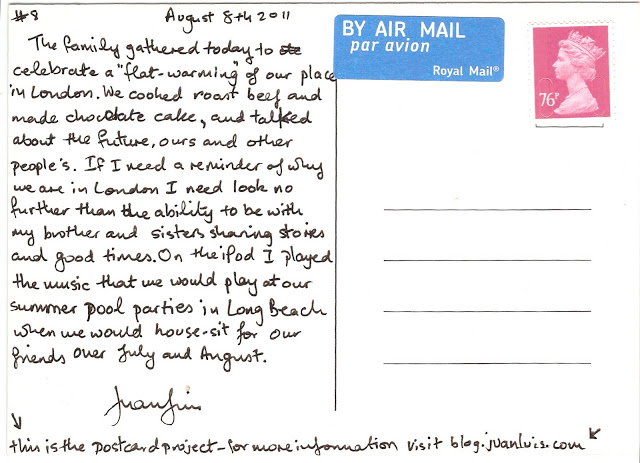 #8 August 8th 2011
The family gathered today to
celebrate a "flat-warming" of our place
in London. We cooked roast beef and
made chocolate cake, and talked
about the future, ours and other
people's. If I need a reminder of why
we are in London I need look no
further than the ability to be with
my brother and sisters sharing stories
and good times. On the iPod I played
the music that we would play at our
summer pool parties in Long Beach
when we would house-sit for our
friends over July and August.
JuanLuis
this is the postcard project - for more information visit blog.juanluis.com
BY AIR MAIL
par avion
Royal Mail®
76P